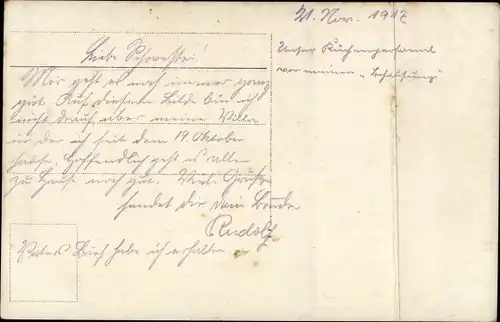 21. Nov. 1917
Unser Küchenpersonal
vor meiner „Behausung"
Liebe Schwester!
Mir geht es noch immer ganz
gut. Auf diesem Bilde bin ich
nicht drauf, aber meine Villa
in der ich seit dem 19. Oktober
hause. Hoffendlich geht es allen
zu Hause noch gut. Viele Grüße
sendet dir dein Bruder
Rudolf.
Vaters Brief habe ich erhalten.